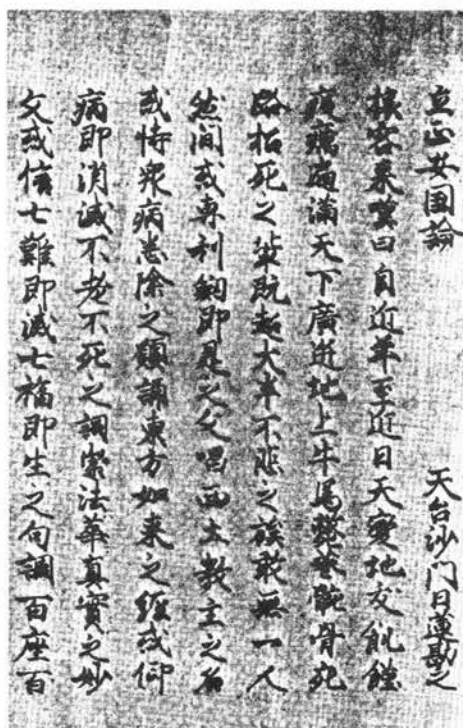 立正安国論　天台沙門日蓮勘之
旅客来嘆曰自近年至近日天變地夭飢饉
疫癘遍滿天下廣迸地上牛馬斃巷骸骨充
路招死之輩既超大半不悲之族敢無一人
然間或專利劔即是之文唱西土教主之名
或恃衆病悉除之願誦東方如来之經或仰
病即消滅不老不死之詞崇法華真實之妙
文或信七難即滅七福即生之句調百座百